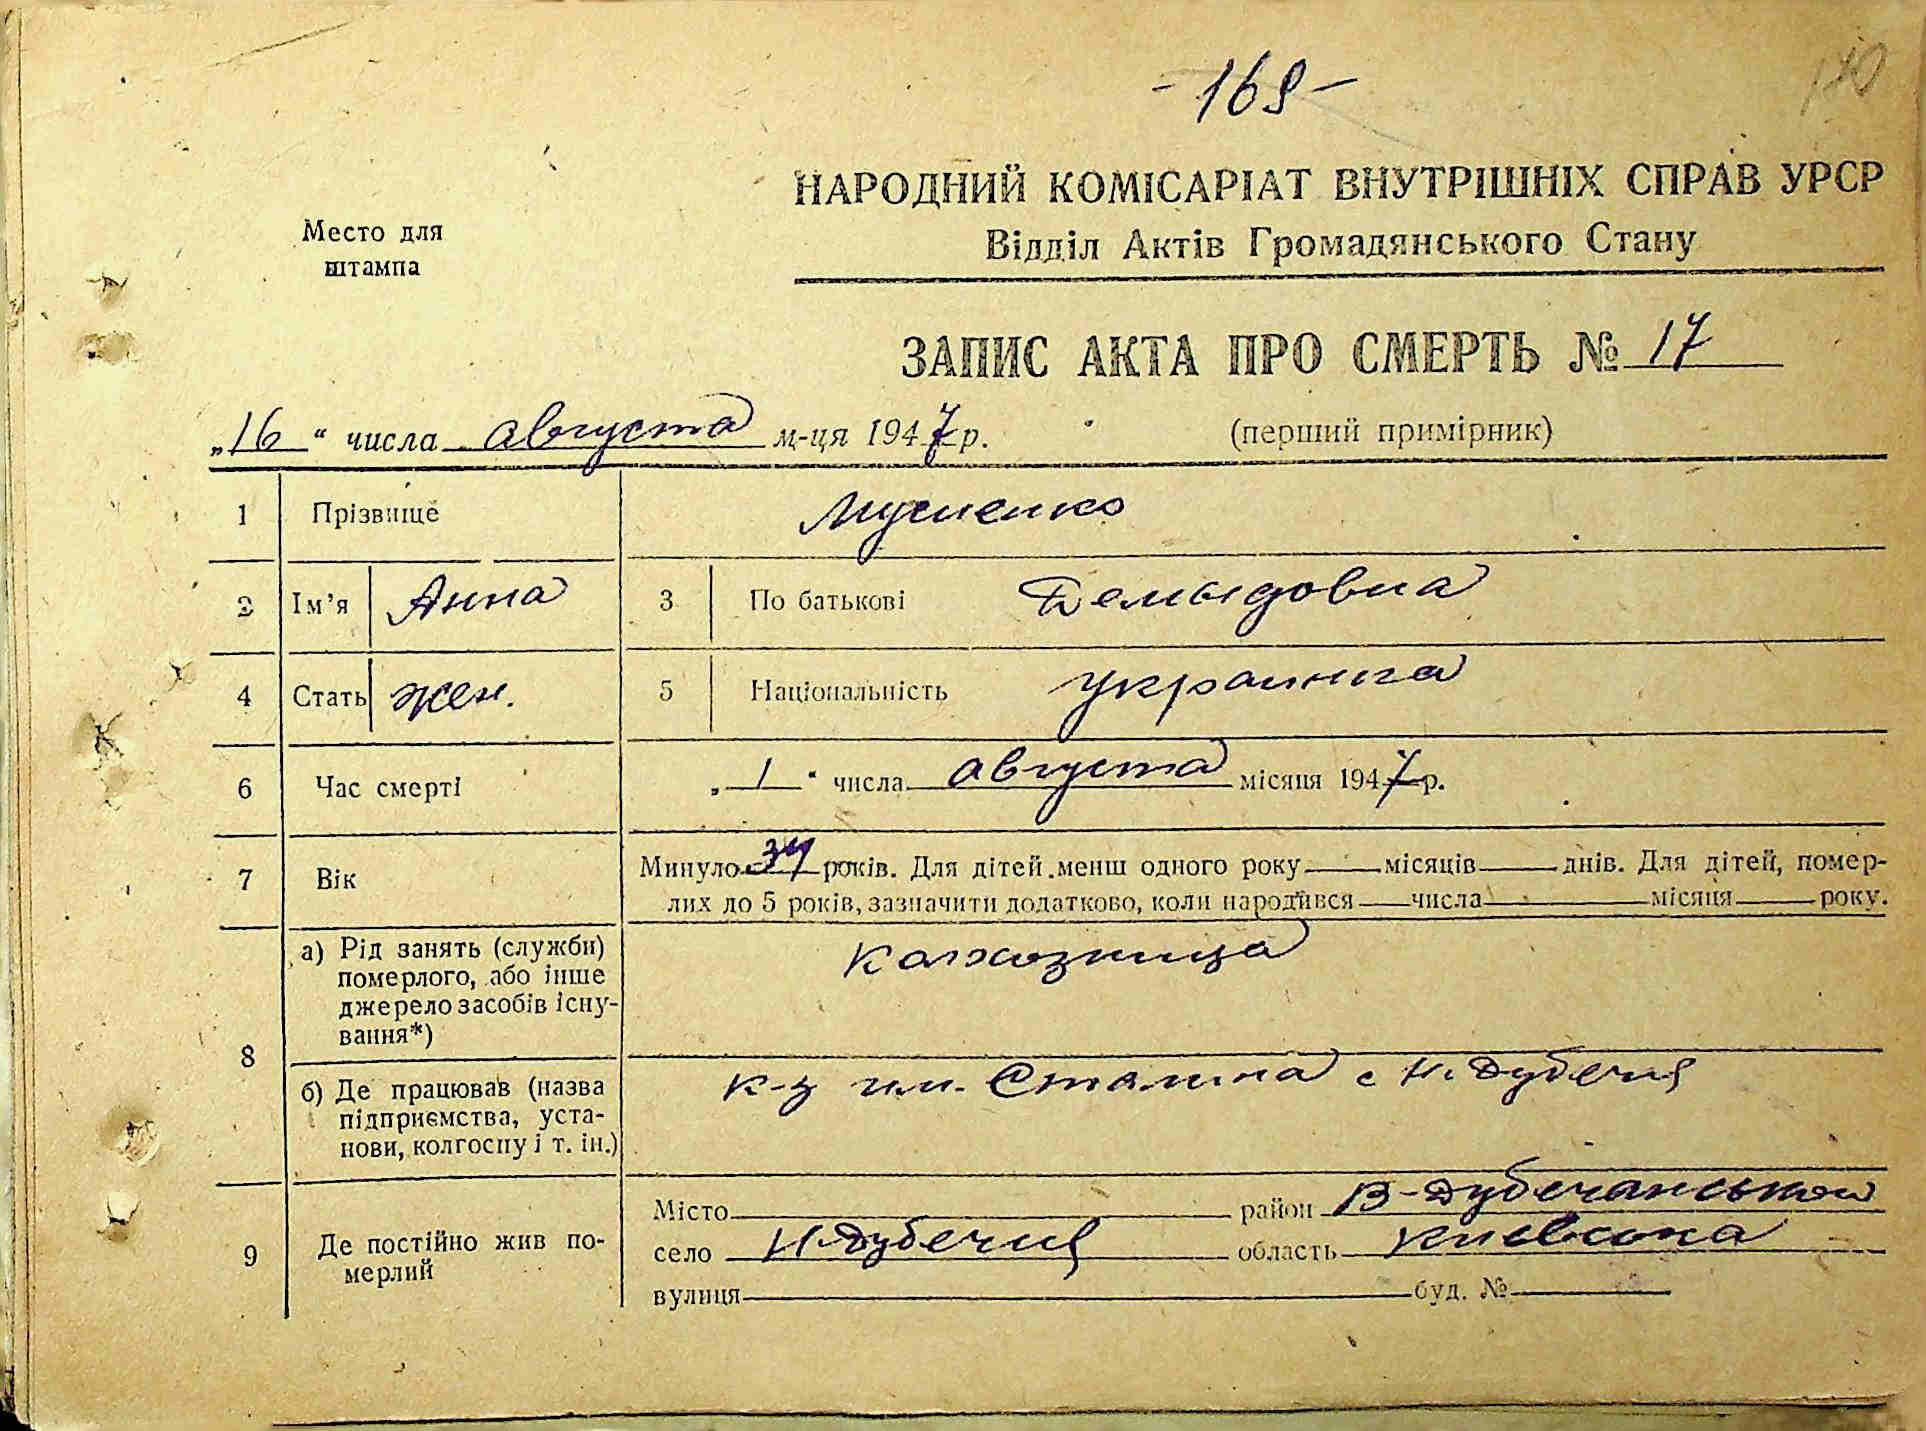 - 169 -
170
НАРОДНИЙ КОМІСАРІАТ ВНУТРІШНІХ СПРАВ УРСР
Відділ Актів Громадянського Стану
Место для
штампа
ЗАПИС АКТА ПРО СМЕРТЬ № 17
„16“ числа августа м-ця 1947 р. (перший примірник)
1 Прізвище
2 Ім’я Анна 3 По батькові Демыдовна
4 Стать жен. 5 Національність украинка
6 Час смерті „1“ числа августа місяця 1947 р.
7 Вік Минуло 34 років. Для дітей менш одного року місяців днів. Для дітей, помер-
лих до 5 років, зазначити додатково, коли народився числа місяця року.
8 а) Рід занять (служби)
померлого, або інше
джерело засобів існу-
вання*) колхозница
б) Де працював (назва
підприємства, уста-
нови, колгоспу і т. ін.) к-з им. Сталина с Н. Дубечня
9 Де постійно жив по-
мерлий
Місто район В-Дубечанський
село Н-Дубечня область Киевська
вулиця буд. №